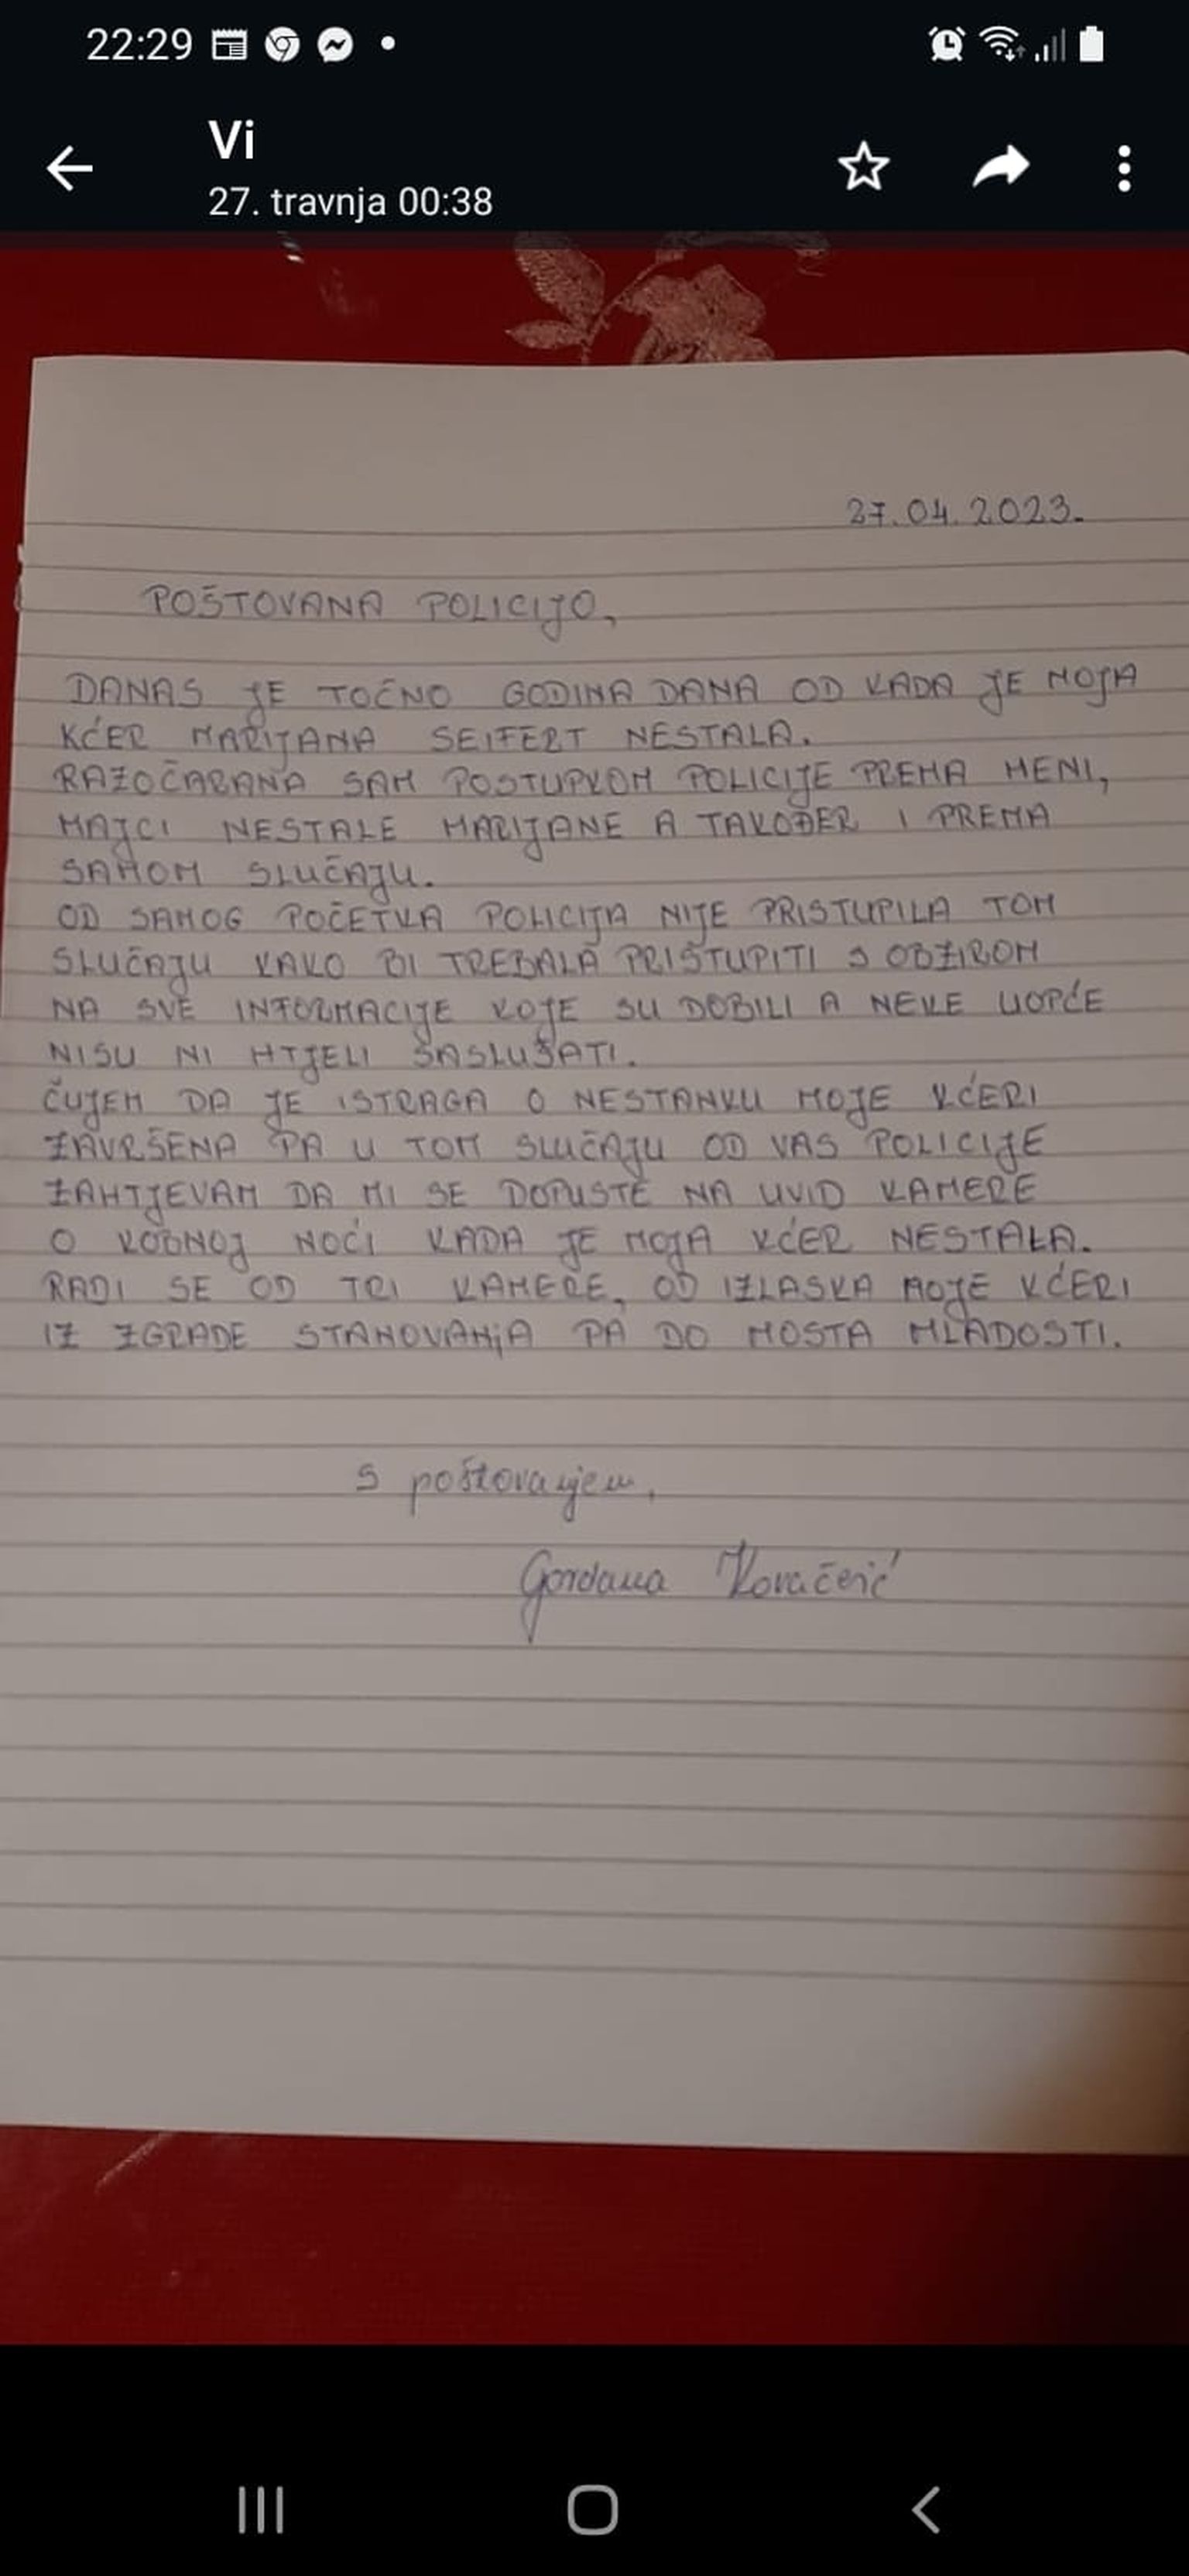 22:29
Vi
27. travnja 00:38
27.04.2023.
POŠTOVANA POLICIJO,
DANAS JE TOČNO GODINA DANA OD KADA JE MOJA
KĆER MARIJANA SEIFERT NESTALA.
RAZOČARANA SAM POSTUPKOM POLICIJE PREMA MENI,
MAJCI NESTALE MARIJANE A TAKOĐER I PREMA
SAMOM SLUČAJU.
OD SAMOG POČETKA POLICIJA NIJE PRISTUPILA TOM
SLUČAJU KAKO BI TREBALA PRISTUPITI S OBZIROM
NA SVE INFORMACIJE KOJE SU DOBILI A NEKE UOPĆE
NISU NI HTJELI SASLUŠATI.
ČUJEM DA JE ISTRAGA O NESTANKU MOJE KĆERI
ZAVRŠENA PA U TOM SLUČAJU OD VAS POLICIJE
ZAHTJEVAM DA MI SE DOPUSTE NA UVID KAMERE
O KOBNOJ NOĆI KADA JE MOJA KĆER NESTALA.
RADI SE OD TRI KAMERE, OD IZLASKA MOJE KĆERI
IZ ZGRADE STANOVANjA PA DO MOSTA MLADOSTI.
S poštovanjem,
Gordana Kovačević